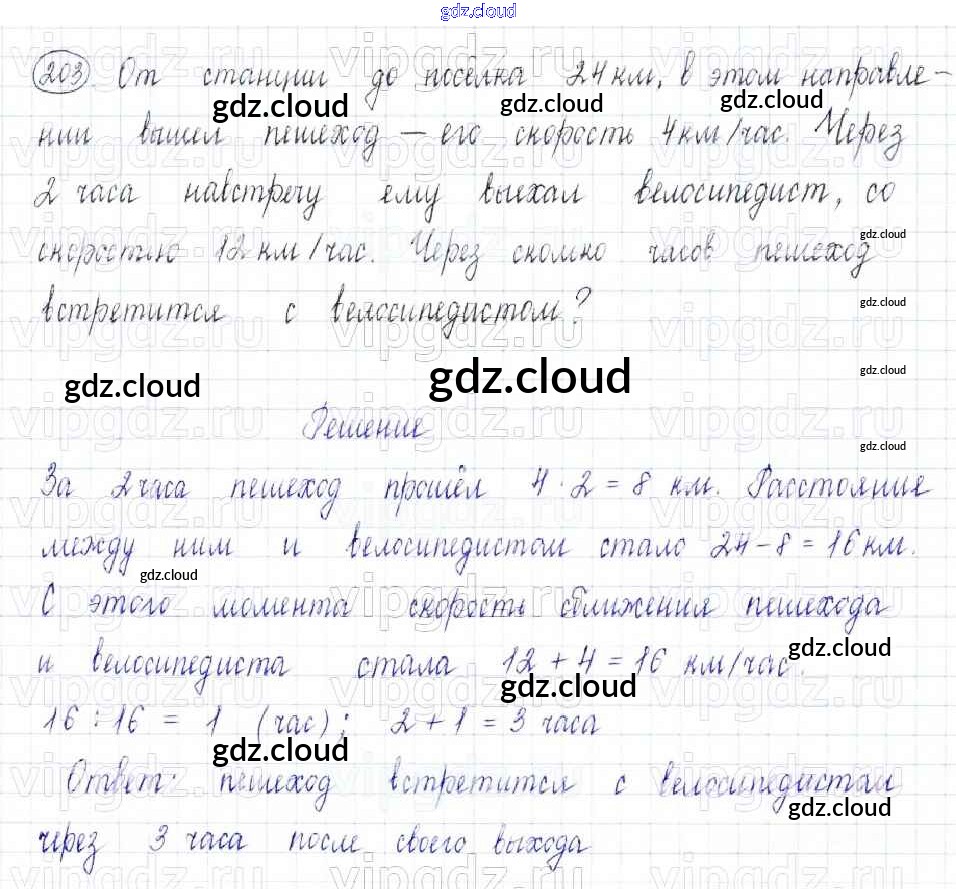 gdz.cloud
203 От станции до посёлка 24 км, в этом направле-
gdz.cloud gdz.cloud gdz.cloud
нии вышел пешеход — его скорость 4 км/час. Через
2 часа навстречу ему выехал велосипедист, со
скоростью 12 км/час. Через сколько часов пешеход
gdz.cloud
встретится с велосипедистом?
gdz.cloud
gdz.cloud gdz.cloud gdz.cloud
Решение
gdz.cloud
За 2 часа пешеход прошёл 4 · 2 = 8 км. Расстояние
между ним и велосипедистом стало 24 – 8 = 16 км.
gdz.cloud
С этого момента скорость сближения пешехода
gdz.cloud
и велосипедиста стала 12 + 4 = 16 км/час.
gdz.cloud
16 : 16 = 1 (час); 2 + 1 = 3 часа
gdz.cloud
Ответ: пешеход встретится с велосипедистом
gdz.cloud
через 3 часа после своего выхода